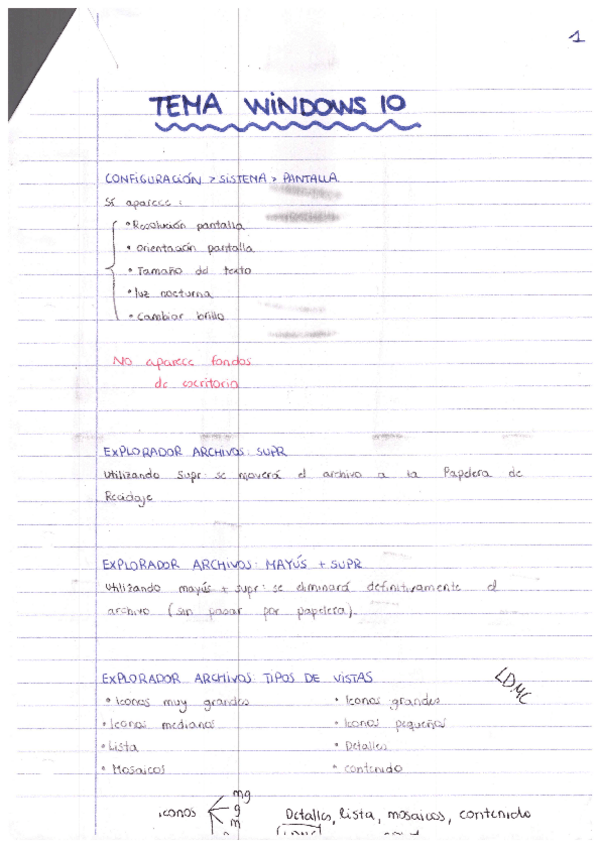 1
TEMA WINDOWS 10
CONFIGURACIÓN > SISTEMA > PANTALLA
Sí aparece:
• Resolución pantalla
• Orientación pantalla
• Tamaño del texto
• luz nocturna
• Cambiar brillo
NO aparece fondos
de escritorio
EXPLORADOR ARCHIVOS: SUPR
Utilizando Supr: se moverá el archivo a la Papelera de
Reciclaje
EXPLORADOR ARCHIVOS: MAYÚS + SUPR
Utilizando mayús + supr: se eliminará definitivamente el
archivo (sin pasar por papelera).
EXPLORADOR ARCHIVOS: TIPOS DE VISTAS
LDMC
• Iconos muy grandes • Iconos grandes
• Iconos medianos • Iconos pequeños
• Lista • Detalles
• Mosaicos • Contenido
mg
iconos g Detalles, lista, mosaicos, contenido
m